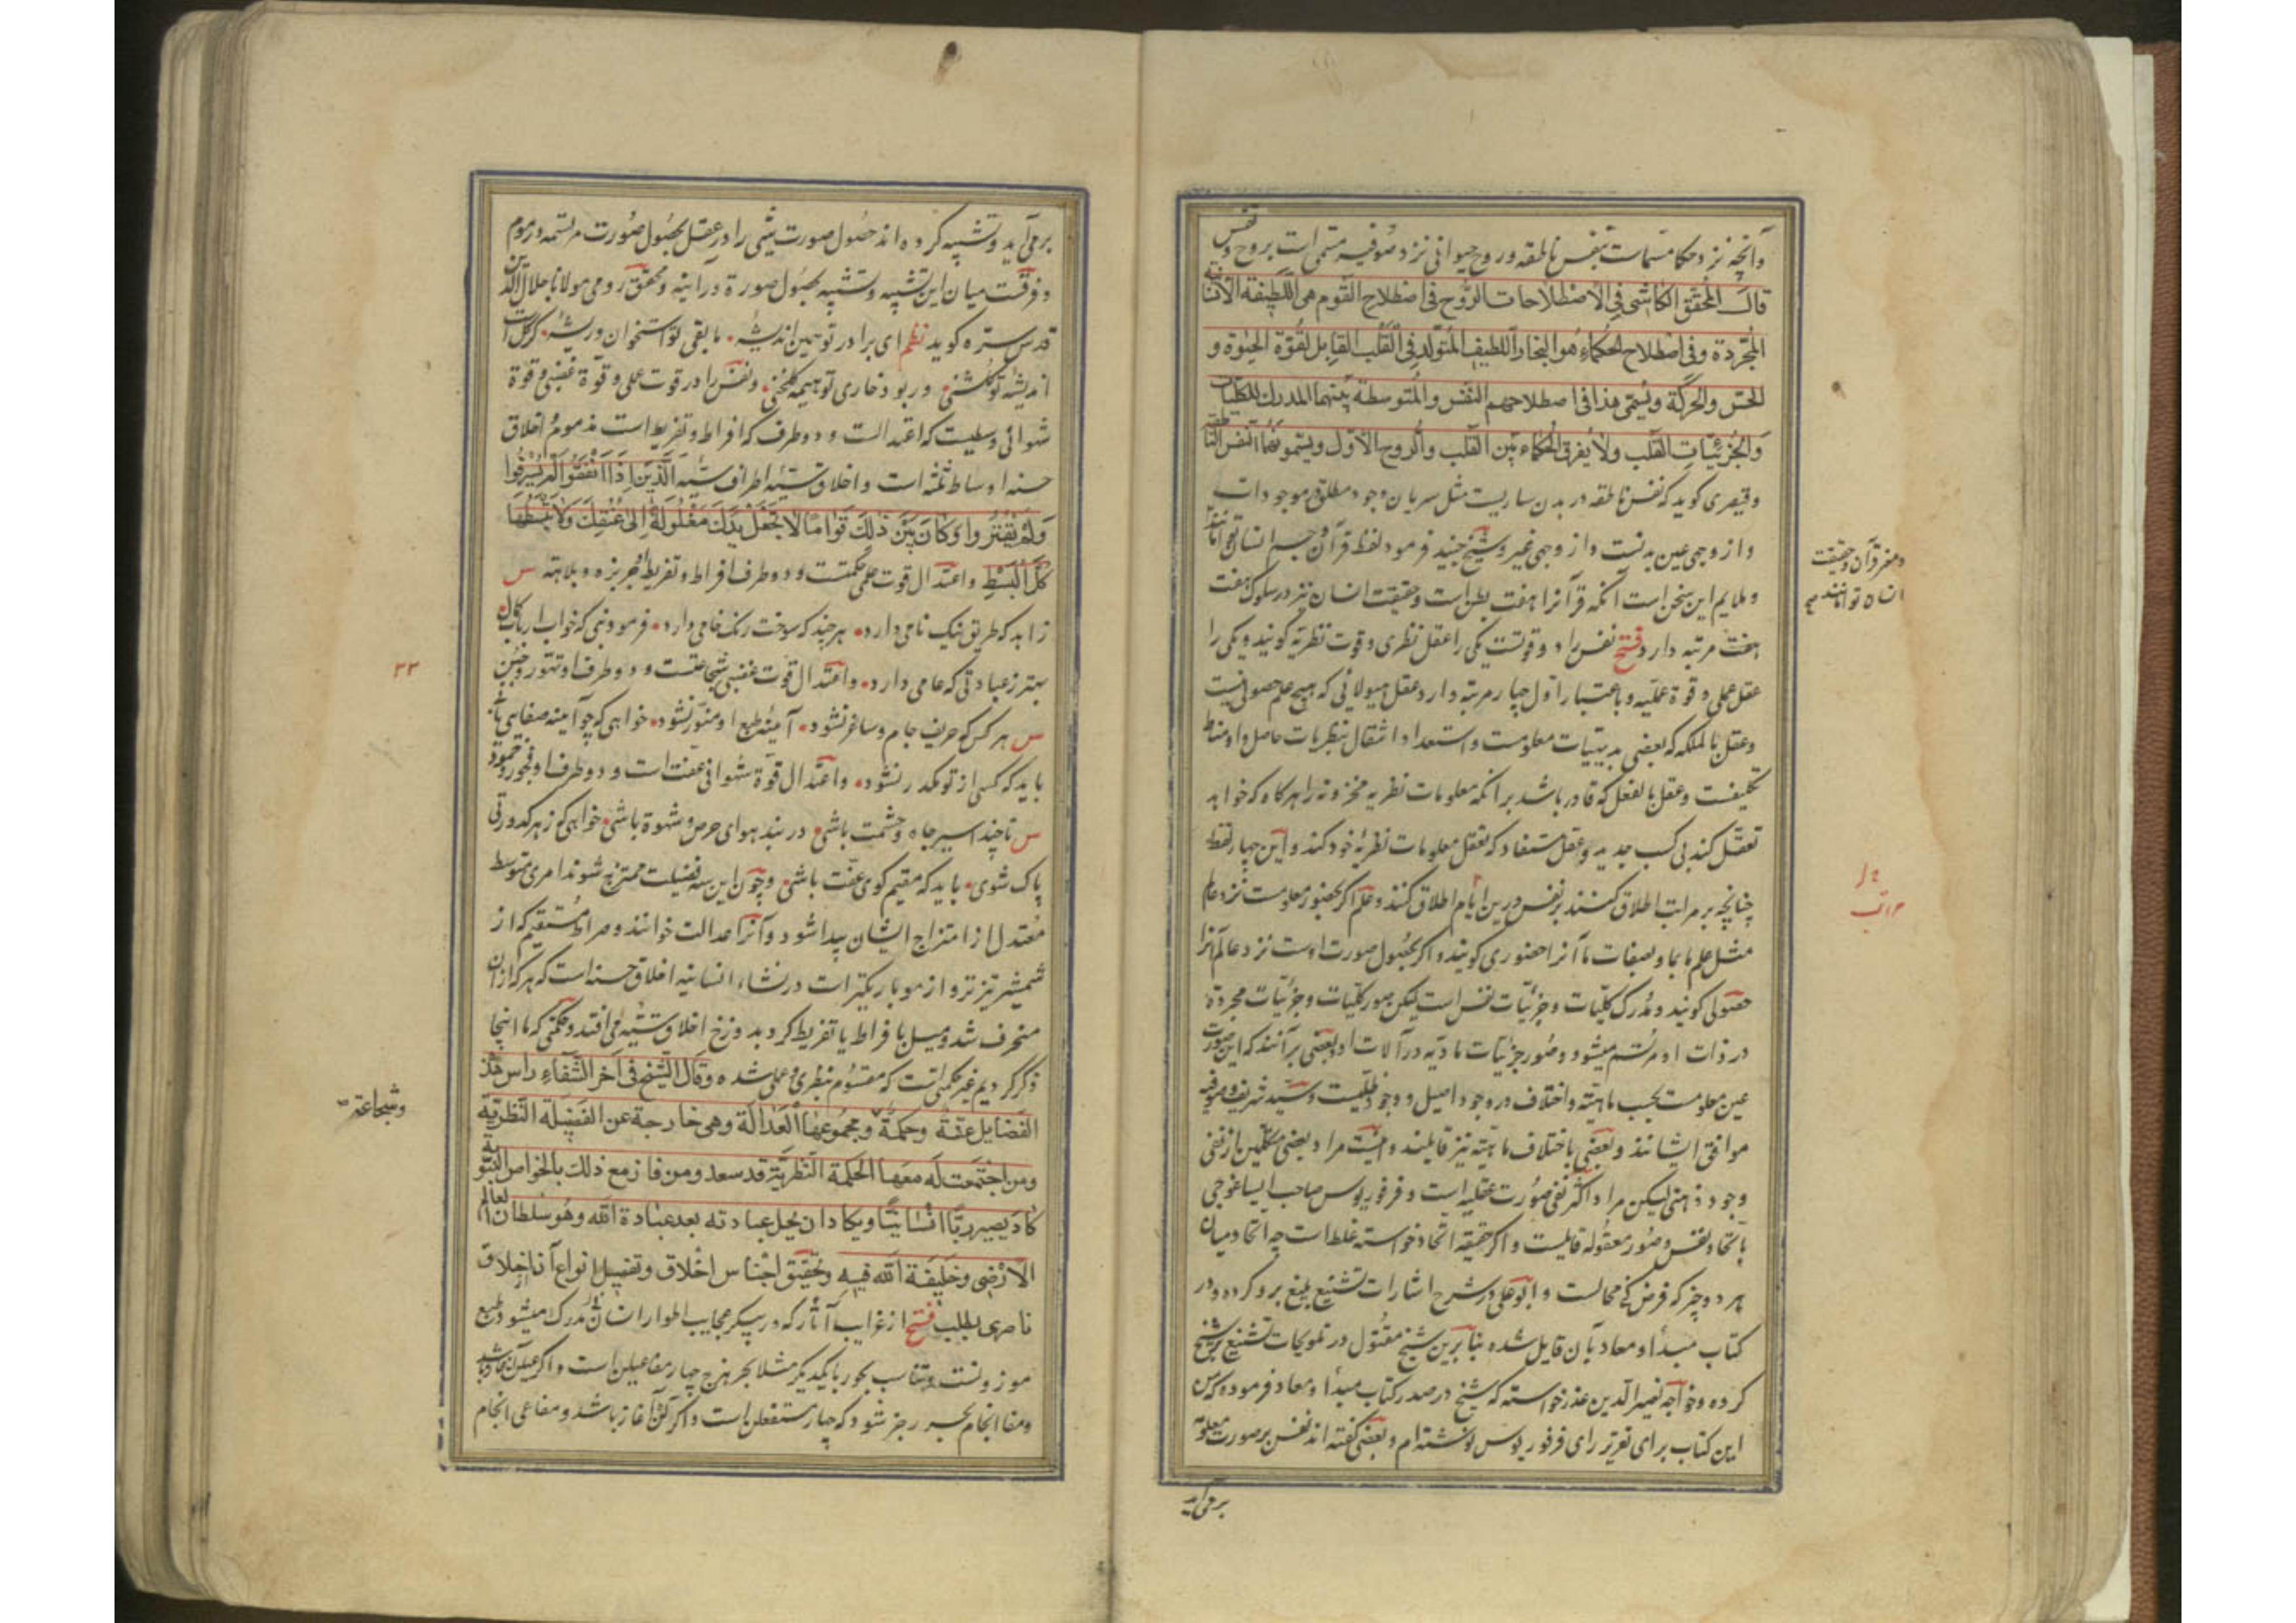 وآنچه نزد حکما مسمات بنفس ناطقه و روح حیوانی نزد صوفیه مسمی است بروح و نفس
قال المحقق الکاشی فی الاصطلاحات الروح فی اصطلاح القوم هی اللطیفة الانسانیة
المجردة وفی اصطلاح الحکماء هو البخار اللطیف المتولد فی القلب القابل لقوة الحیوة و
الحس والحرکة ویسمی هذا فی اصطلاحهم النفس والمتوسطة بینهما المدرک للکلیات
والجزئیات القلب ولا یفرق الحکماء بین القلب والروح الاول ویسمونهما النفس الناطقة
وقیصری کوید که نفس ناطقه در بدن ساریست مثل سریان وجود مطلق در موجودات
و از وجهی عین بدنست و از وجهی غیر و شیخ جنید فرمود لفظ قرآن و جسم انسان توامانند
و مغز قرآن و حقیقت
انسان توامانند صح
و ملایم این سخن است آنکه قرآنرا هفت بطن است و حقیقت انسان نیز در سلوک هفت
هفت مرتبه دارد فتح نفس را دو قوتست یکی را عقل نظری و قوت نظریه کویند و یکی را
عقل عملی و قوة عملیه و باعتبار اول چهار مرتبه دارد عقل هیولانی که هیچ علم حصولی نیست
وعقل بالملکه که بعضی بدیهیات معلومست و استعداد انتقال بنظریات حاصل و او مناط
تکلیفست و عقل بالفعل که قادر باشد بر آنکه معلومات نظریه مخزونه را هرکاه که خواهد
تعقل کند بی کسب جدید و عقل مستفاد که تعقل معلومات نظریه خود کند و این چهار لفظ
چنانچه بر مراتب اطلاق کنند بر نفس درین ایام اطلاق کنند و علم اکر بحضور معلومست نزد عالم
مراتب
مثل علم ما بما و بصفات ما آنرا حضوری کویند و اکر بحصول صورت اوست نزد عالم آنرا
حصولی کویند و مدرک کلیات و جزئیات نفس است لیکن صور کلیات و جزئیات مجرده
در ذات او مرتسم میشود و صور جزئیات مادیه در آلات او و بعضی بر آنند که این صورت
عین معلومست بحسب ماهیة و اختلاف در وجود اصیل و وجود ظلیست و سید شریف و صوفیه
موافق ایشانند و بعضی باختلاف ماهیة نیز قایلند و اینست مراد بعضی متکلمین از نفی
وجود ذهنی لیکن مراد اکثر نفی صورت عقلیه است و فرفوریوس صاحب ایساغوجی
باتحاد نفس و صور معقوله قایلست و اکر حقیقه اتحاد خواسته غلط است چه اتحاد میان
هر دو چیز که فرض کنی محالست و ابو علی در شرح اشارات تشنیع بلیغ برو کرده و در
کتاب مبدأ و معاد بآن قایل شده بنابرین شیخ مقتول در تلویحات تشنیع بر شیخ
کرده و خواجه نصیر الدین عذر خواسته که شیخ در صدر کتاب مبدأ و معاد فرموده که من
این کتاب برای تقریر رای فرفوریوس نوشته ام و بعضی کفته اند نفس بر صورت معلوم
برمی آید
برمی آید و تشبیه کرده اند حصول صورت شی را در عقل بحصول صورت مرتسمه در موم
و فرقست میان این تشبیه و تشبیه بحصول صورة در آینه و محقق رومی مولانا جلال الدین
قدس سره کوید نظم ای برادر تو همین اندیشهٔ ما بقی تو استخوان و ریشهٔ کر کلست
اندیشهٔ تو کلشنی ور بود خاری تو هیمه کلخنی و نفس را در قوت عملی و قوة غضبی و قوة
شهوانی وسطیست که اعتدالست و دو طرف که افراط و تفریط است مذموم و اخلاق
حسنه اوساط ثلثه است و اخلاق سیئه اطراف سته الذین اذا انفقوا لم یسرفوا
ولم یقتروا وکان بین ذلک قواما لا تجعل یدک مغلولة الی عنقک ولا تبسطها
کل البسط و اعتدال قوت عملی حکمتست و دو طرف افراط و تفریط او جربزه و بلاهة س
زاهد که طریق نیک نامی دارد هر چند که سوخت رنک خامی دارد فرمود نبی که خواب ارباب کمال
بهتر ز عبادتی که عامی دارد و اعتدال قوت غضبی شجاعتست و دو طرف او تهور و جبن
٣٣
س هر کس که حریف جام و ساغر نشود آیینهٔ طبع او منور نشود خواهی که چو آیینه صفا یابی باز
باید که کسی از تو مکدر نشود و اعتدال قوة شهوانی عفت است و دو طرف او فجور و خمود
س تا چند اسیر جاه و حشمت باشی در بند هوای حرص و شهوة باشی خواهی که ز هر کدورتی
پاک شوی باید که مقیم کوی عفت باشی و چون این سه فضیلت ممتزج شوند امری متوسط
معتدل از امتزاج ایشان پیدا شود و آنرا عدالت خوانند و صراط مستقیم که از
شمشیر تیزتر و از مو باریکتر است در نشاء انسانیه اخلاق حسنه است که هر که از ان
منحرف شد و میل بافراط یا تفریط کرد بدوزخ اخلاق سیئه می افتد و حکمتی که ما اینجا
ذکر کردیم غیر حکمتی است که مقسوم بنظری و عملی شده وقال الشیخ فی آخر الشفاء راس هذه
الفضایل عفة وحکمة ومجموعها العدالة وهی خارجة عن الفضیلة النظریة
وشجاعة
ومن اجتمعت له معها الحکمة النظریة قد سعد ومن فاز مع ذلک بالخواص النبویة
کاد یصیر ربا انسانیا ویکاد ان یحل عبادته بعد عبادة الله وهو سلطان العالم
الارضی وخلیفة الله فیه و تحقیق اجناس اخلاق و تفصیل انواع آن از اخلاق
ناصری بطلب فتح از غرایب آثار که در پیکر عجایب اطوار انسان مدرک میشود طبع
موزونست و تناسب بحور با یکدیکر مثلا بحر هزج چهار مفاعیلن است و اکر عیلن آغاز باشد
ومفا انجام بحر رجز شود که چهار مستفعلن است و اکر لن آغاز باشد و مفاعی انجام